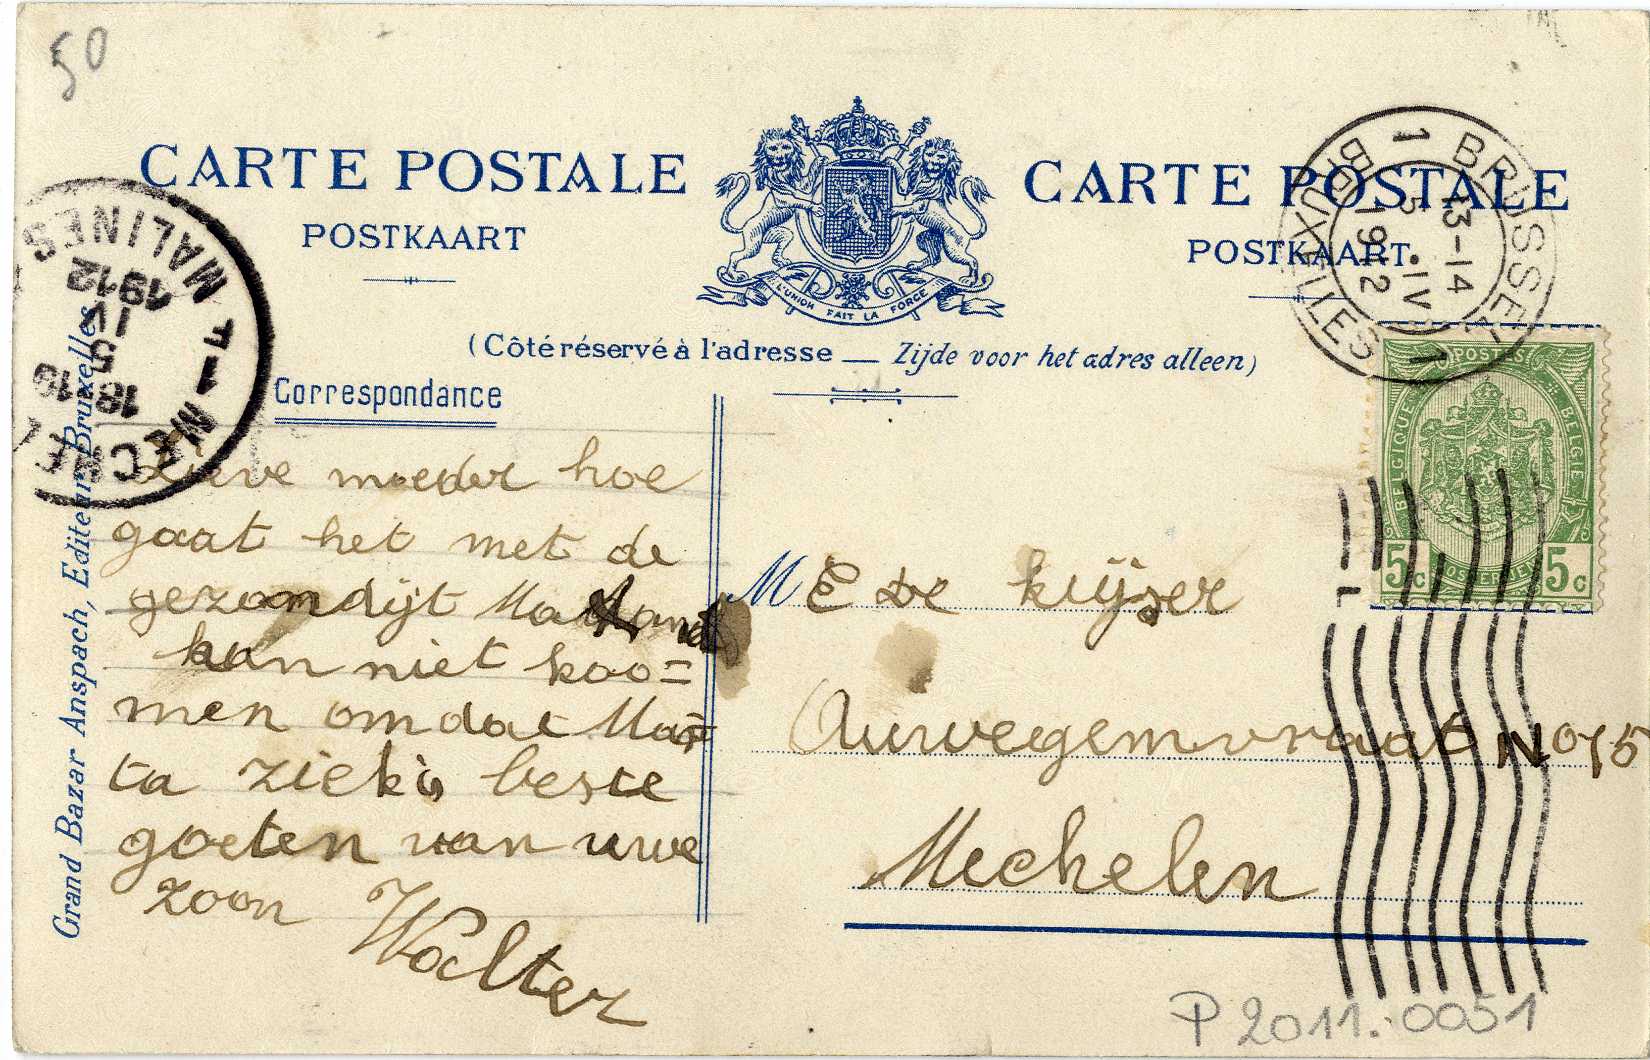 50
CARTE POSTALE
POSTKAART
L'UNION FAIT LA FORCE
CARTE POSTALE
POSTKAART
(Côté réservé à l'adresse — Zijde voor het adres alleen)
1 BRUSSEL 1 BRUXELLES
13-14
5 .IV.
1912
MALINES
1912
IV
5
18
Correspondance
Lieve moeder hoe
gaat het met de
gezondijt
kan niet koo=
men omdat Mar=
ta ziek is beste
goeten van uwe
zoon Walter
POSTES
BELGIQUE BELGIË
5c 5c
M E De Kijzer
Auwegemvraat No 75
Mechelen
Grand Bazar Anspach, Editeur, Bruxelles
P 2011.0051